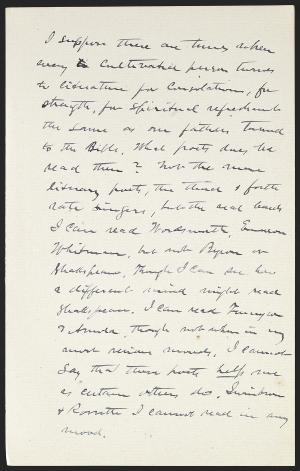 I suppose there are times when
every cultivated person turns
to literature for consolation, for
strength, for spiritual refreshment
the same as our fathers turned
to the Bible. What poets does he
read then? Not the mere
literary poets, the third & forth
rate singers, but the real bards
I can read Wordsworth, Emerson
Whitman, but not Byron or
Shakspeare, though I can see how
a different mind might read
Shakspeare. I can read Tennyson
& Arnold, though not when in my
most serious moods. I cannot
say that these poets help me
as certain others do. Swinburn
& Rossetti I cannot read in any
mood.